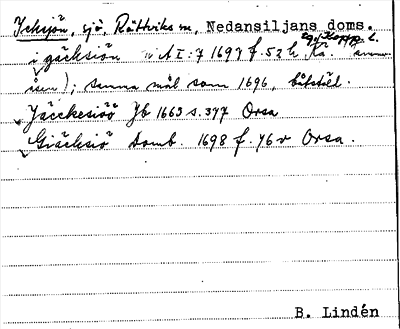 Jcksjön, sjö, Rättviks sn, Nedansiljans doms.
i gäcksiön A I:7 1697 f. 52 h.
åsen); samma mål som 1696,
Jäcckesiöö Jb 1663 s. 377 Orsa
Giäcksiö Domb. 1698 f. 76 v Orsa.
B. Lindén